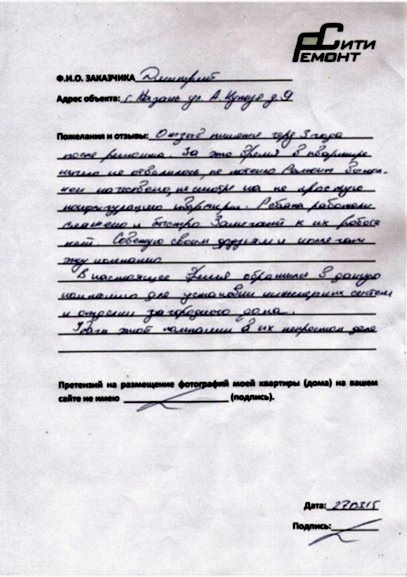 Сити
Ремонт
Ф.И.О. ЗАКАЗЧИКА Дмитрий
Адрес объекта: г. Казань ул. А. Кутуя д. 9
Пожелания и отзывы: Отзыв пишется через 3 года
после ремонта. За это время в квартире
ничего не отвалилось, не потекло Ремонт выпол-
нен качественно, несмотря на не простую
конфигурацию квартиры. Ребята работали
слаженно и быстро Замечаний к их работе
нет. Советую своим друзьям и коллегам
эту компанию
В настоящее время обратился в данную
компанию для установки инженерных систем
и отделки загородного дома.
Удачи этой компании в их непростом деле
Претензий на размещение фотографий моей квартиры (дома) на вашем
сайте не имею (подпись).
Дата: 270315
Подпись: